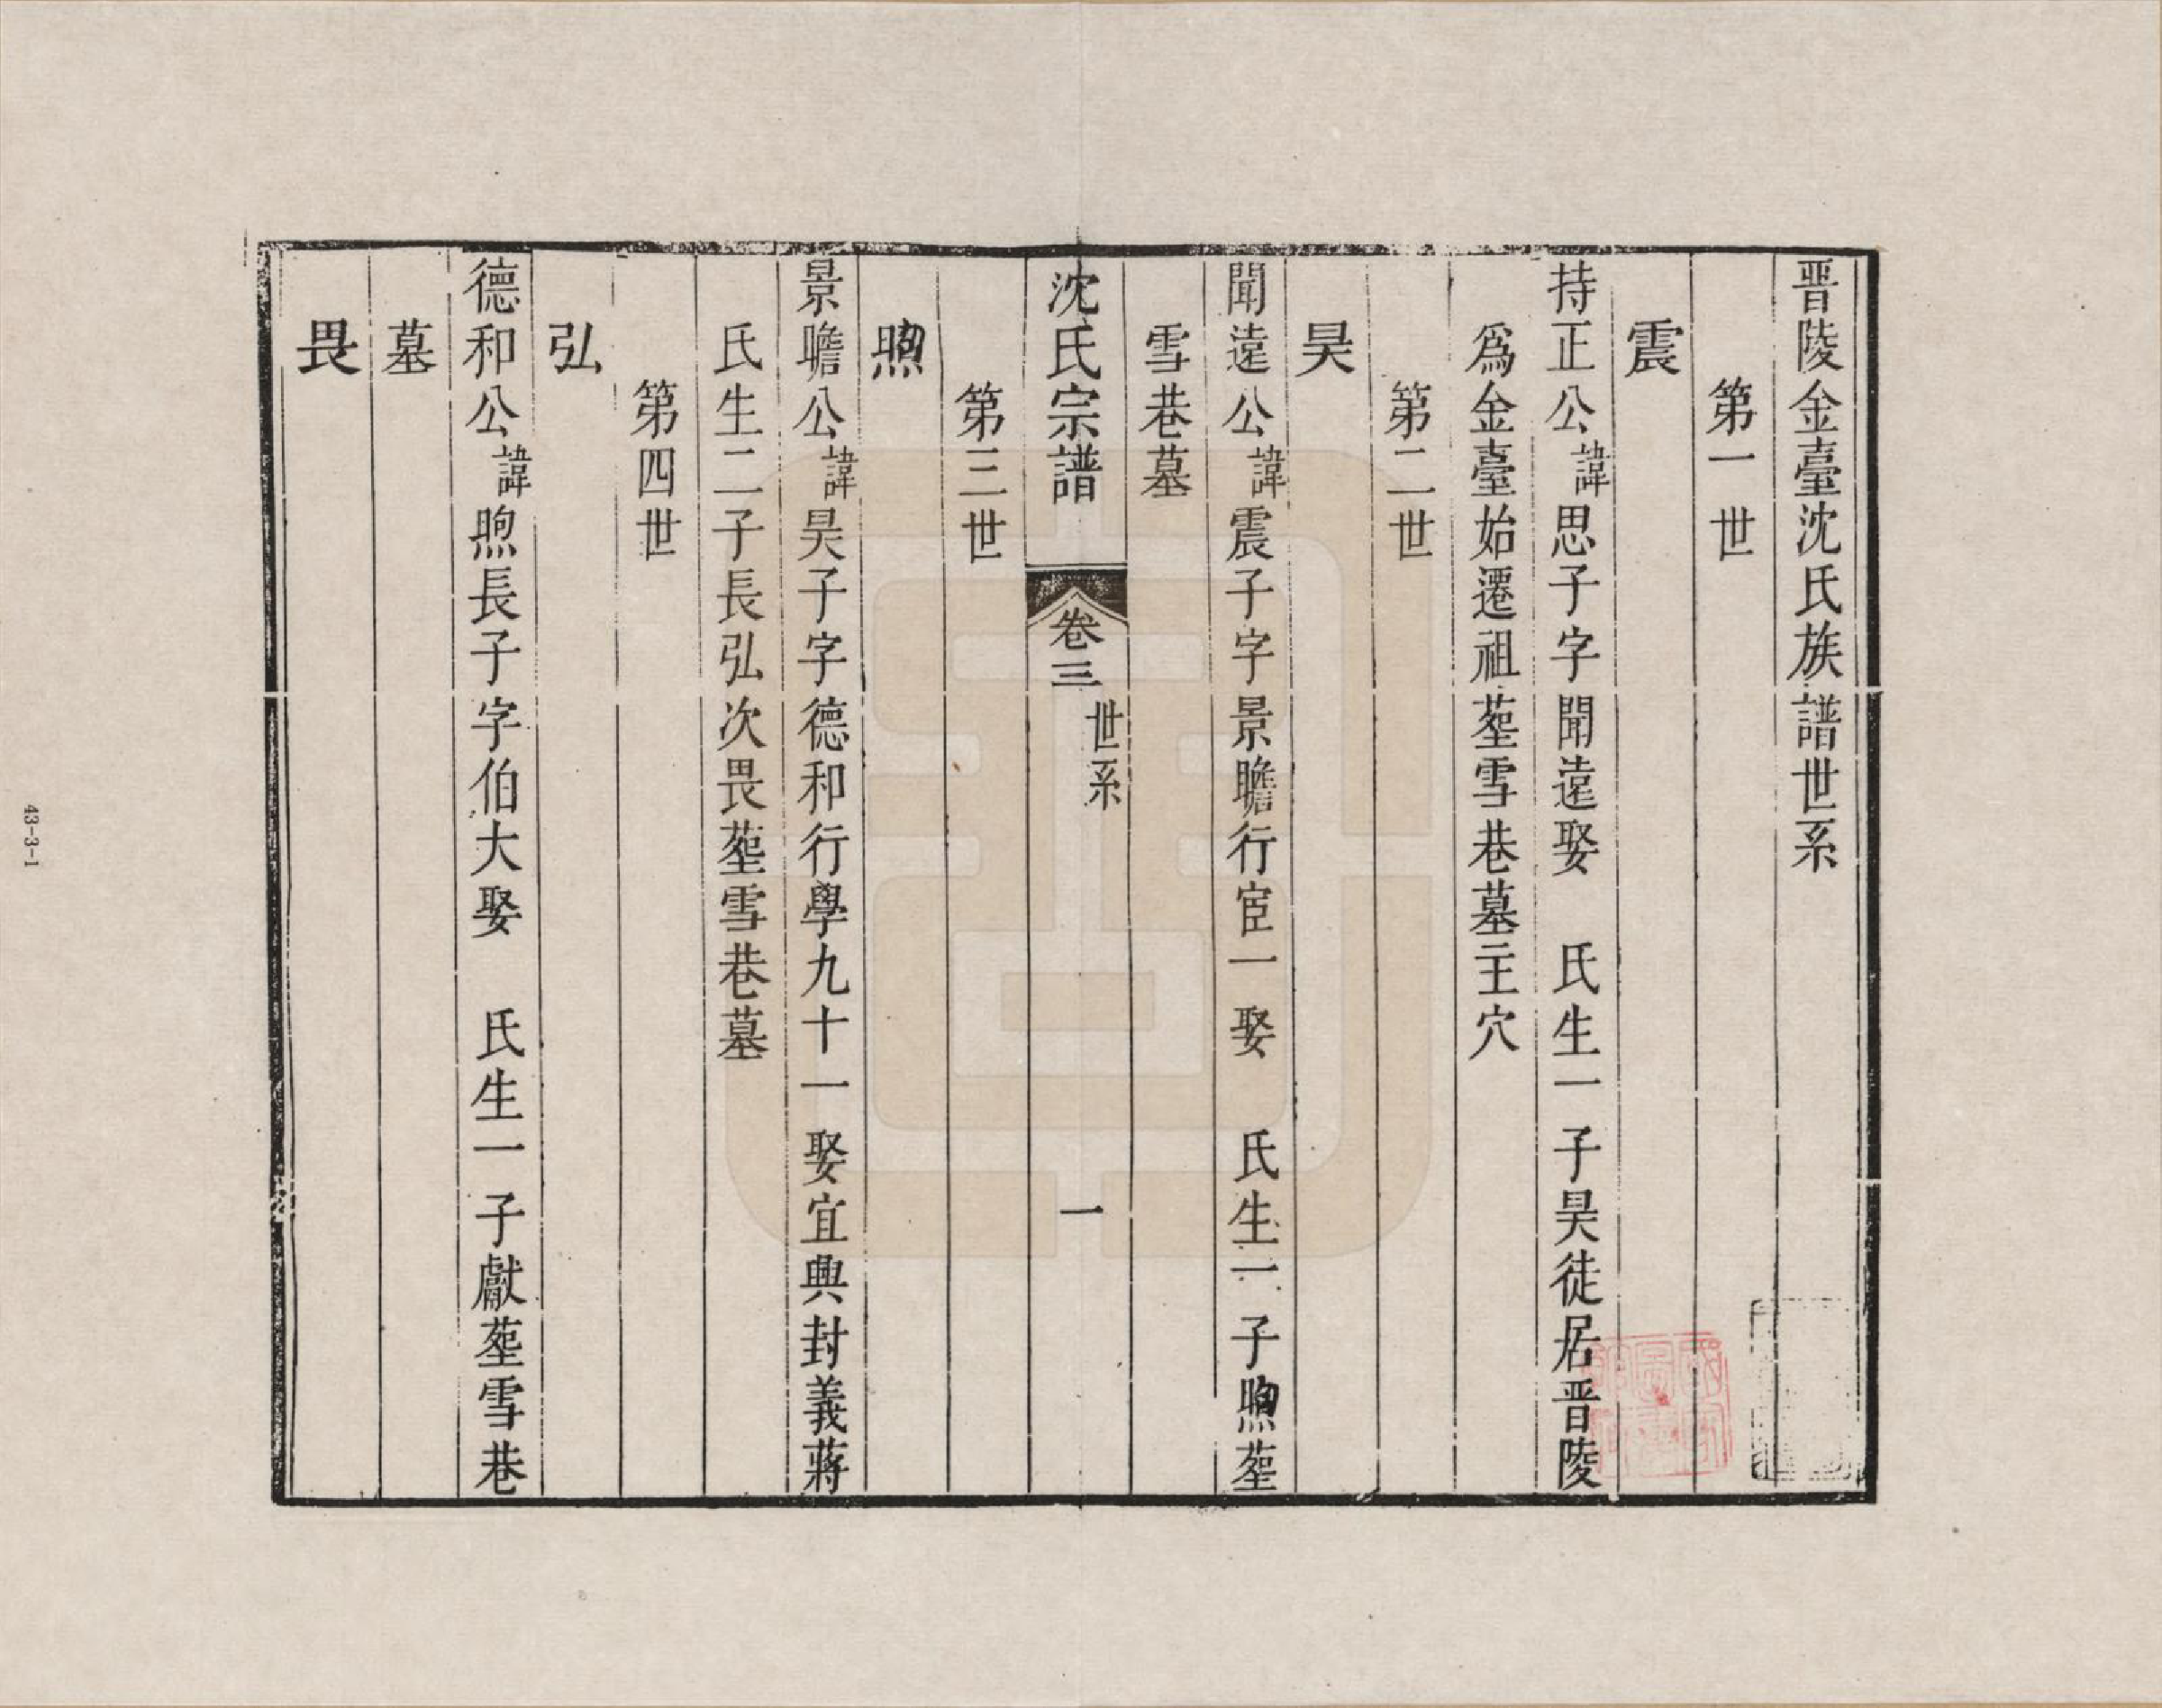 晋陵金臺沈氏族譜世系
第一世
震
持正公諱思子字聞遠娶　氏生一子昊徒居晋陵
爲金臺始遷祖塟雪巷墓主穴
第二世
昊
聞遠公諱震子字景瞻行宦一娶　氏生一子煦塟
雪巷墓
沈氏宗譜
卷三
世系
一
第三世
煦
景瞻公諱昊子字德和行學九十一娶宜興封義蔣
氏生二子長弘次畏塟雪巷墓
第四世
弘
德和公諱煦長子字伯大娶　氏生一子獻塟雪巷
墓
畏
43-3-1